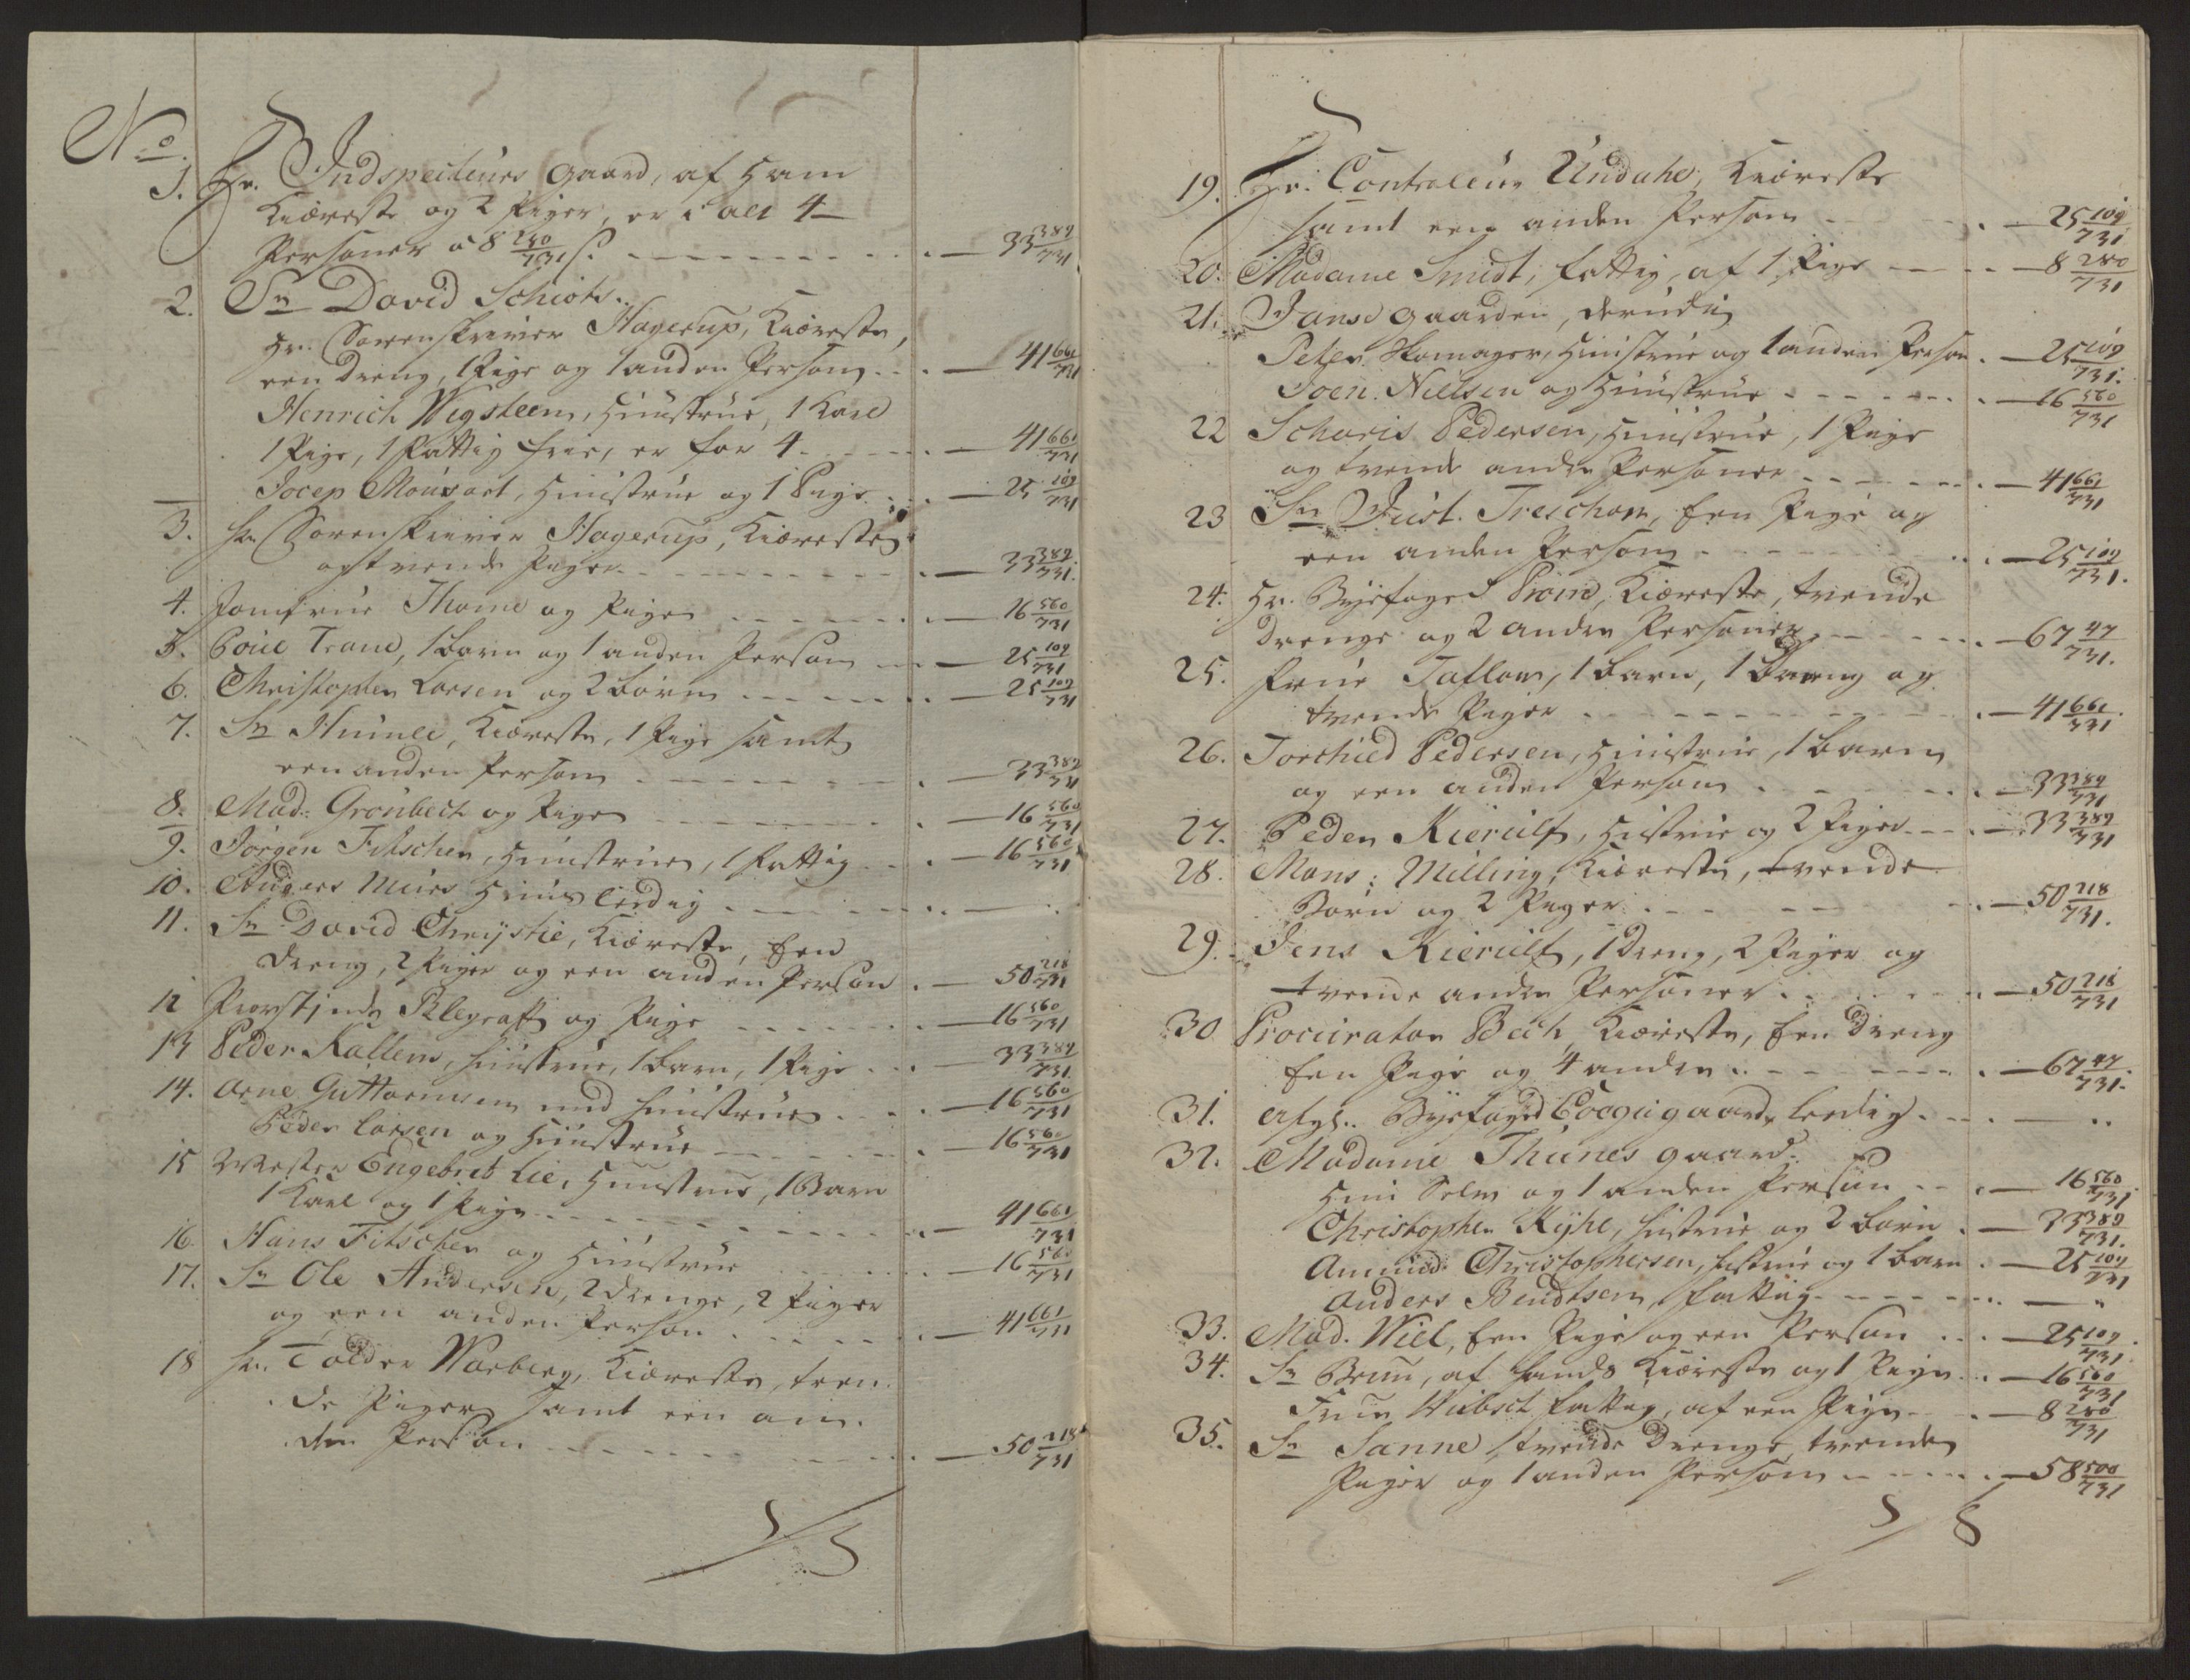 No.
1. Hr. Indspecteurs Gaard, af ham
Kiæreste og 2 Piger, er i alt 4
Personer a 8 280/731 s. — 33 389/731
2. Sr David Schiøts.
Hr. Sorenskriver Hagerup, Kiæreste,
een Dreng, 1 Pige og 1 anden Person — 41 661/731
Henrich Wegsteen, Huustrue, 1 Karl
1 Pige, 1 Fattig frie, er for 4 — 41 661/731
Jocep Mousart, Huustrue og 1 Pige — 25 109/731
3. Hr. Sorenskriver Hagerup, Kiæreste
og tvende Piger — 33 389/731
4. Jomfrue Thome og Pige — 16 560/731
5. Povel Trane, 1 barn og 1 anden Person — 25 109/731
6. Christopher Larsen og 2 børn — 25 109/731
7. Sr Humle, Kiæreste, 1 Pige samt
een anden Person — 33 389/731
8. Mad: Grønbech og Pige — 16 560/731
9. Jørgen Fitscher, Huustrue, 1 fattig — 16 560/731
10. Anders Muurs Huus leedig —
11. Sr David Chrystie, Kiæreste, Een
Dreng, 2 Piger og een anden Person — 50 218/731
12 Provstinde Blegraft og Pige — 16 560/731
13 Peder Kallem, Huustrue, 1 barn, 1 Pige — 33 389/731
14. Arne Guttormsen med Huustrue — 16 560/731
Peder Larsen og Huustrue — 16 560/731
15 Mester Engebret Lie, Huustrue, 1 Barn
1 Karl og 1 Pige — 41 661/731
16. Hans Fitscher og Huustrue — 16 560/731
17. Sr Ole Andersen, 2 Drenge, 2 Piger
og een anden Person — 41 661/731
18 Hr. Tolder Warberg, Kiæreste, tven
de Piger samt een an
den Person — 50 218/731
19. Hr. Controleur Undahl, Kiæreste
samt een anden Person — 25 109/731
20. Madame Smidt, fattig, af 1 Pige — 8 280/731
21. Janse Gaarden, derudi
Peter Skomager, Huustrue og 1 anden Person — 25 109/731
Joen Nielsen og Huustrue — 16 560/731
22 Scharis Pedersen, Huustrue, 1 Pige
og tvende andre Personer — 41 661/731
23 Sr Just. Treschow, Een Pige og
een anden Person — 25 109/731
24. Hr. Byefoget Prom, Kiæreste, tvende
Drenge og 2 andre Personer — 67 47/731
25. Frue Taflow, 1 barn, 1 Dreng og
tvende Piger — 41 661/731
26. Torchied Pedersen, Huustrue, 1 barn
og een anden Person — 33 389/731
27. Peder Kierulf, Hustrue og 2 Piger — 33 389/731
28. Mons: Milling, Kiæreste, tvende
Børn og 2 Piger — 50 218/731
29. Jens Kierulf, 1 Dreng, 2 Piger og
tvende andre Personer — 50 218/731
30 Procurator Bech, Kiæreste, Een Dreng
Een Pige og 4 andre — 67 47/731
31. Afgl. Byefoged Gaard leedig —
32. Madame Thunes gaard.
Hun Selv og 1 anden Person — 16 560/731
Christopher Ryhe, Hustrue og 2 børn — 33 389/731
Ammud Christophersen, Hustrue og 1 barn — 25 109/731
Anders Bendtsen, fattig —
33. Mad. Wiel, Een Pige og een Person — 25 109/731
34. Sr Brun, af hands Kiæreste og 1 Pige — 16 560/731
Frue Wibsch fattig, af een Pige — 8 280/731
35. Sr Sanne, tvende Drenge, tvende
Piger og 1 anden Person — 58 500/731